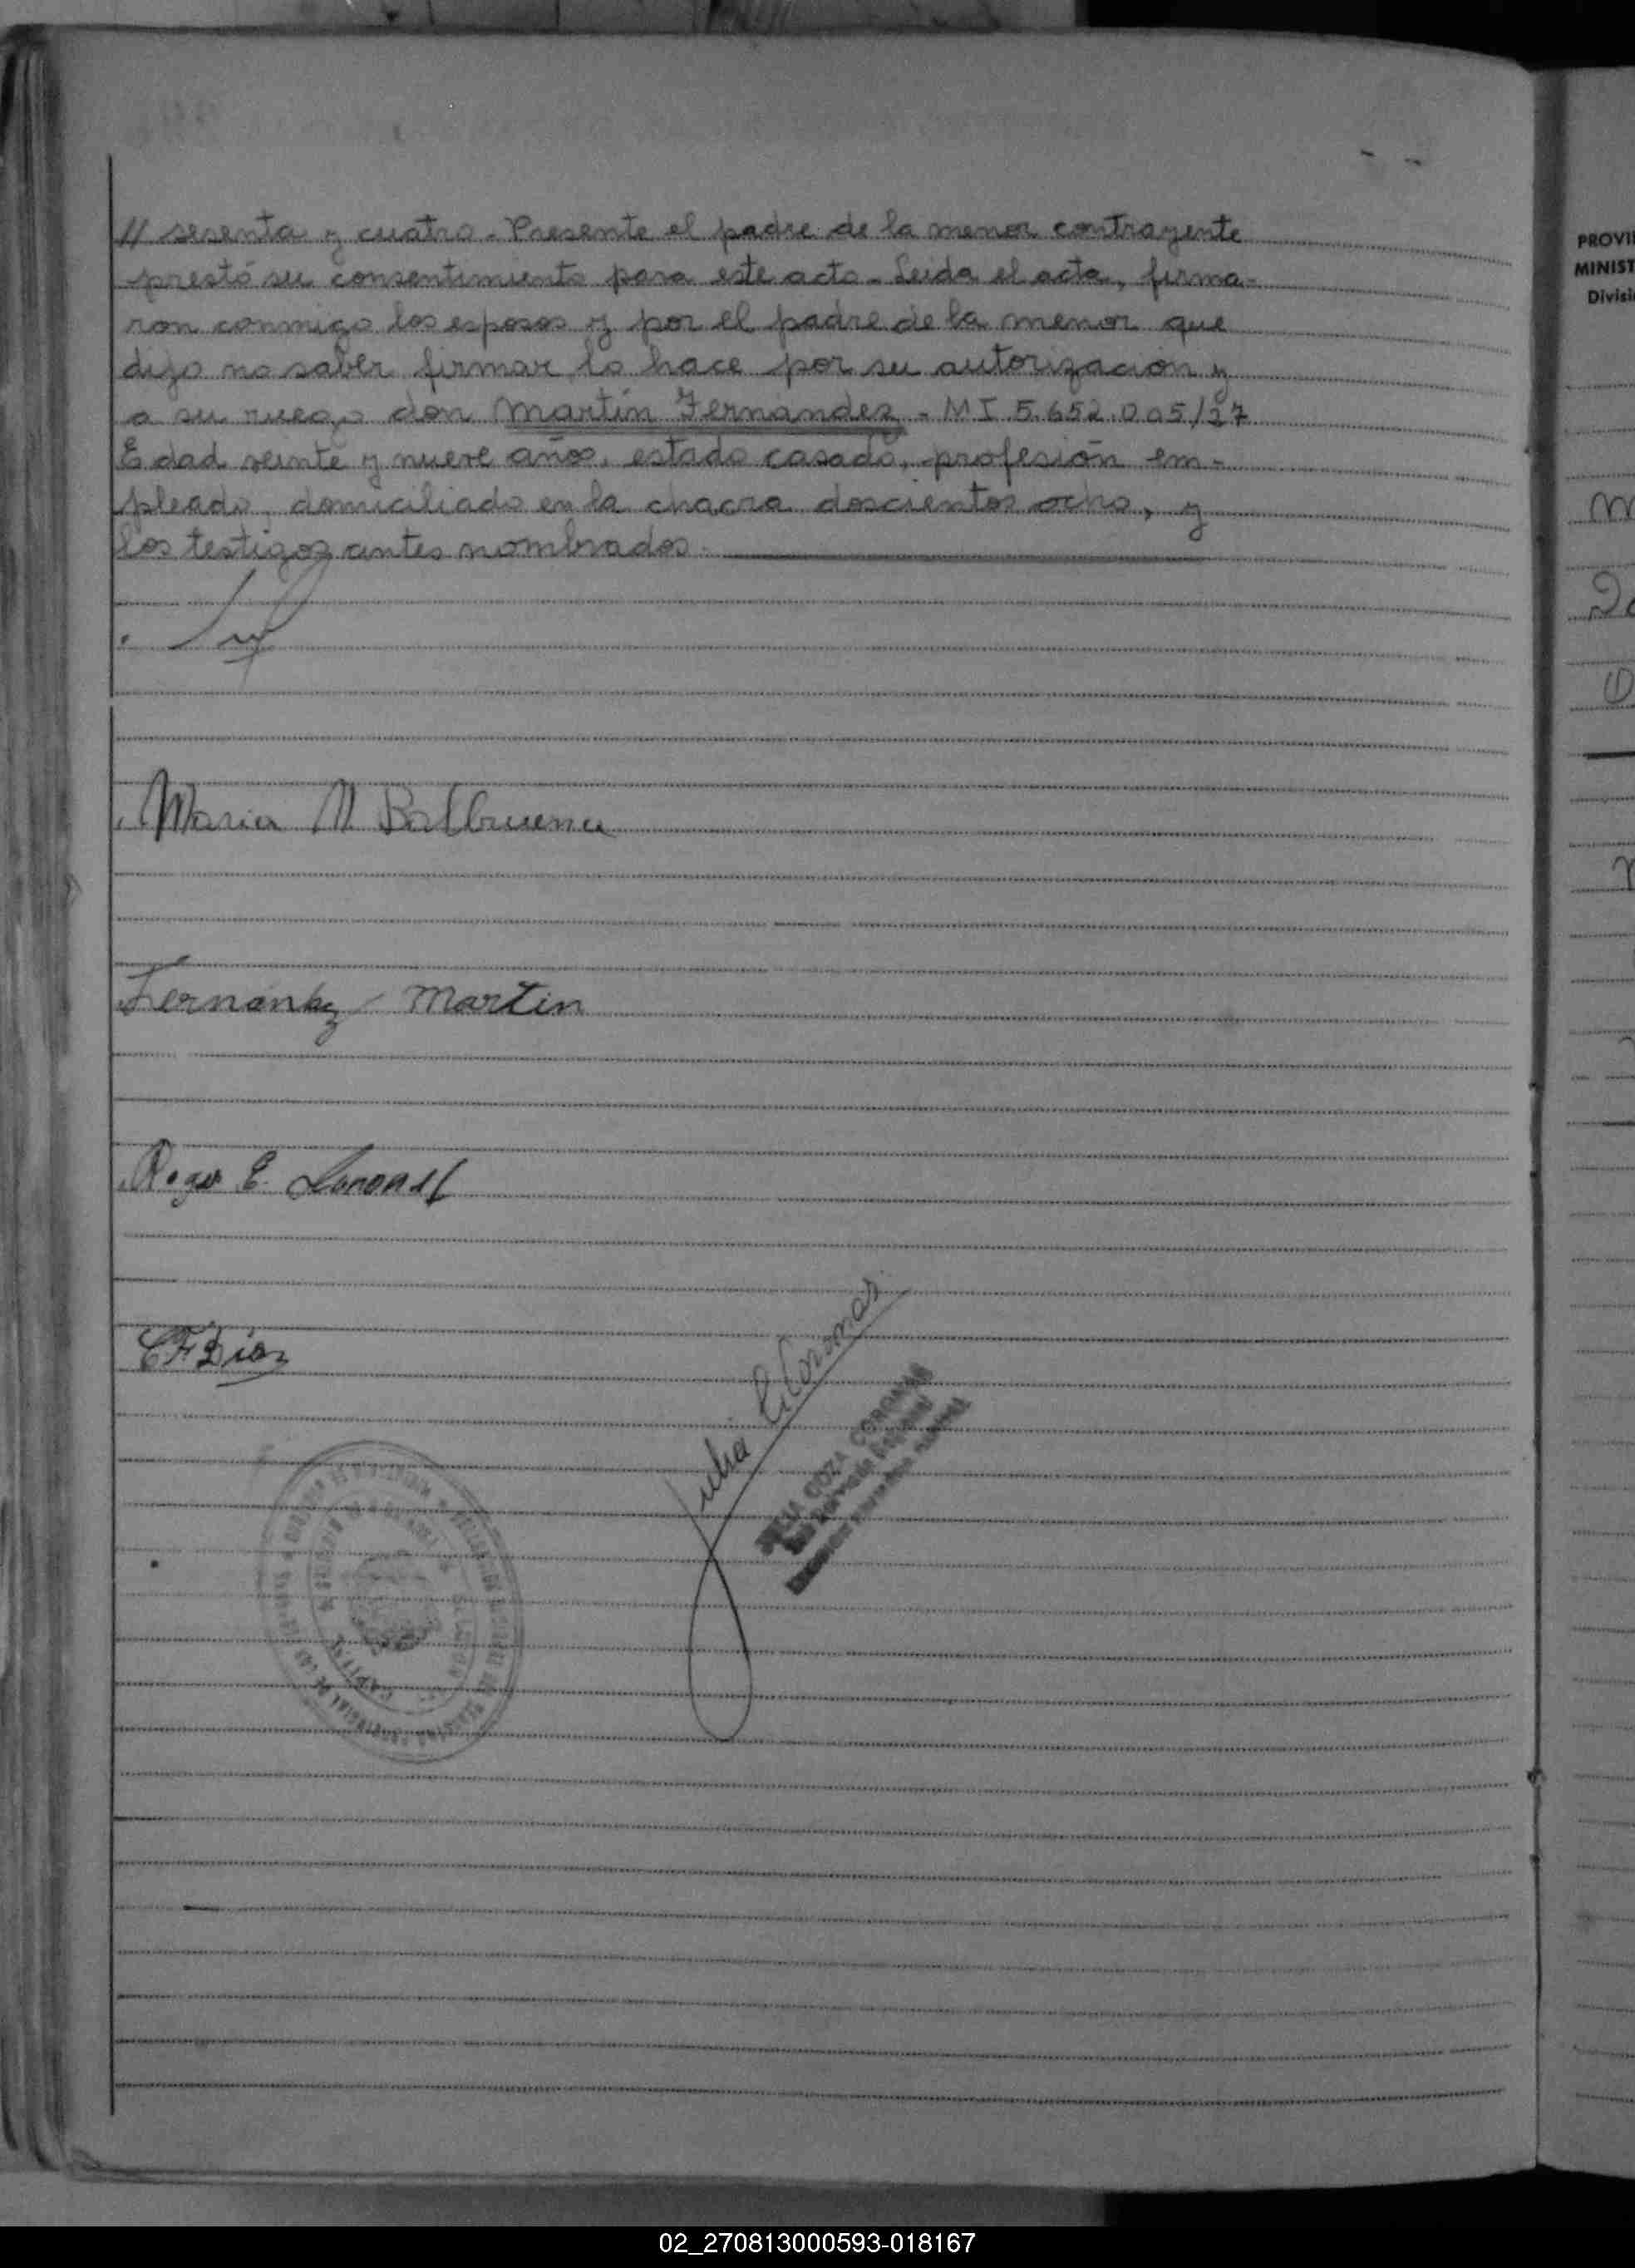 // sesenta y cuatro - Presente el padre de la menor contrayente
prestó su consentimiento para este acto - Leida el acta, firma-
ron conmigo los esposos y por el padre de la menor que
dijo no saber firmar lo hace por su autorización y
a su ruego don Martín Fernandez - M I 5.652.005/27
Edad veinte y nueve años, estado casado, profesión em-
pleado, domiciliado en la chacra doscientos ocho, y
los testigos antes nombrados.
Maria M Balbuena
Fernandez Martin
Roger E.
C F Díaz
Julia C. Coronas
COZA CORONAS
CAPITAL
PROVIN
MINIST
Divisi
02_270813000593-018167